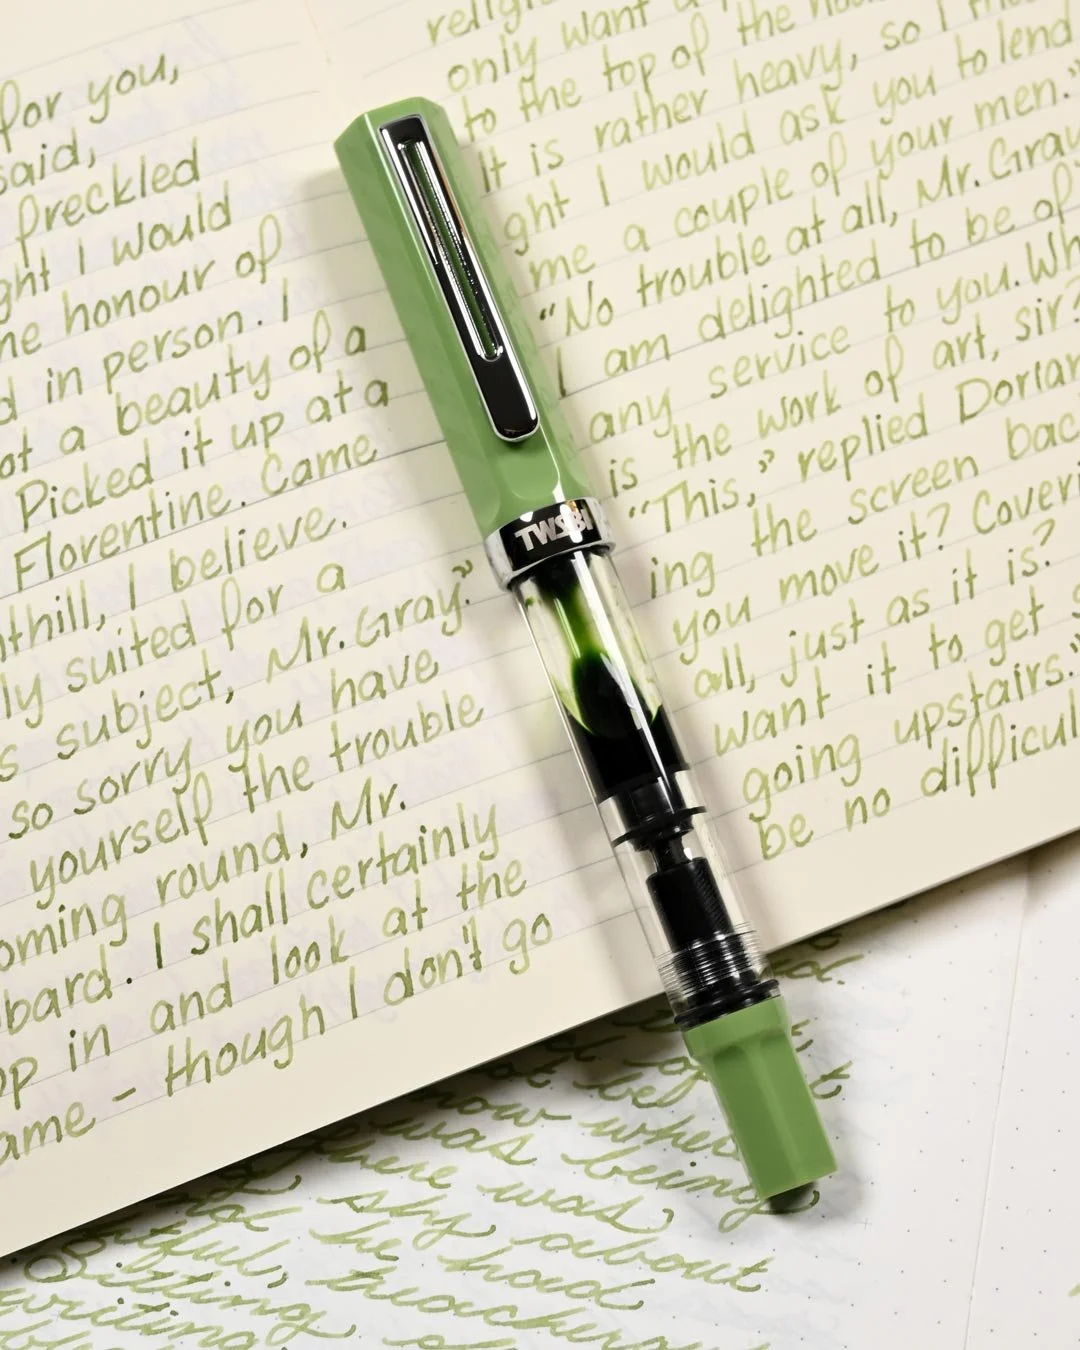 for you,
said,
freckled
ght I would
he honour of
d in person. I
ot a beauty of a
Picked it up at a
Florentine. Came
nthill, I believe.
ly suited for a
s subject, Mr. Gray."
so sorry you have
yourself the trouble
oming round, Mr.
bbard. I shall certainly
op in and look at the
ame – though I don't go
religi
only want a
to the top of the
It is rather heavy, so I
ght I would ask you to lend
me a couple of your men."
"No trouble at all, Mr. Gray
I am delighted to be of
any service to you. Wh
is the work of art, sir?
"This," replied Dorian
ing the screen bac
you move it? Coveri
all, just as it is?
want it to get s
going upstairs."
be no difficul
TWSBI
now when
there was being
shy about
he had
Sitting
writing